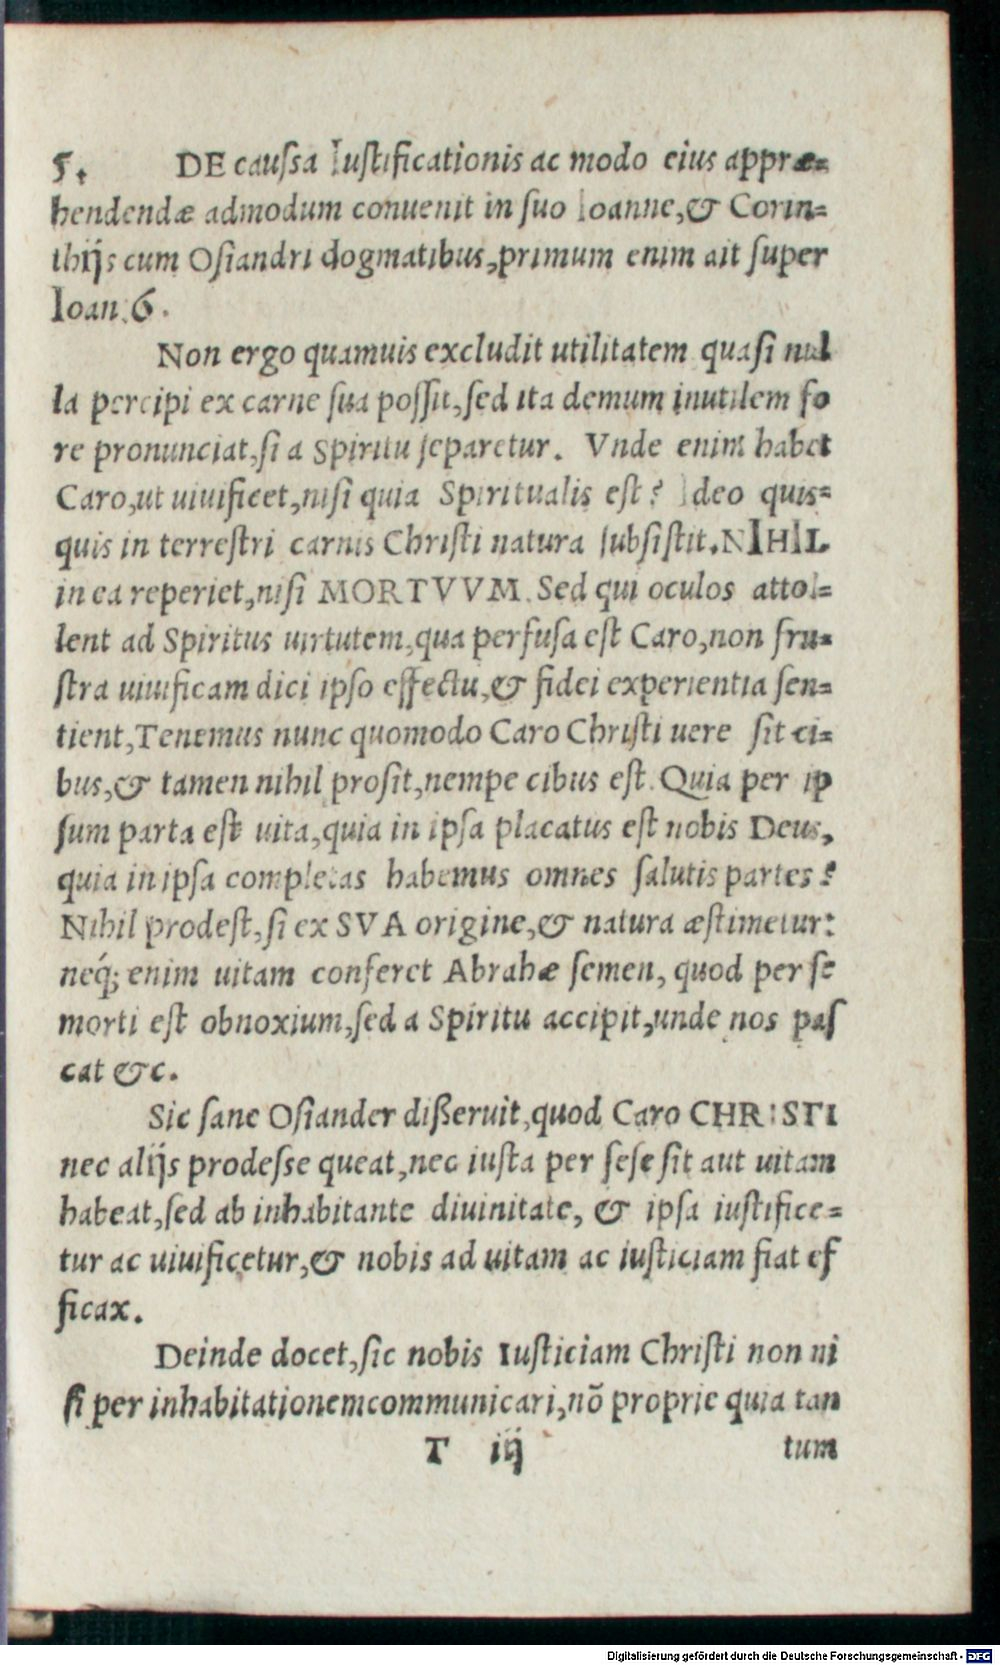 5. DE caussa Iustificationis ac modo eius appræ=
hendendæ admodum conuenit in suo Ioanne, & Corin=
thijs cum Osiandri dogmatibus, primum enim ait super
Ioan. 6.
Non ergo quamuis excludit utilitatem quasi nul
la percipi ex carne sua possit, sed ita demum inutilem fo
re pronunciat, si a Spiritu separetur. Vnde enim habet
Caro, ut uiuificet, nisi quia Spiritualis est? Ideo quis=
quis in terrestri carnis Christi natura subsistit. NIHIL
in ea reperiet, nisi MORTVVM. Sed qui oculos attol=
lent ad Spiritus uirtutem, qua perfusa est Caro, non fru=
stra uiuificam dici ipso effectu, & fidei experientia sen=
tient, Tenemus nunc quomodo Caro Christi uere sit ci=
bus, & tamen nihil prosit, nempe cibus est. Quia per ip
sum parta est uita, quia in ipsa placatus est nobis Deus,
quia in ipsa completas habemus omnes salutis partes?
Nihil prodest, si ex SVA origine, & natura æstimetur:
neq́; enim uitam conferet Abrahæ semen, quod per se
morti est obnoxium, sed a Spiritu accipit, unde nos pas
cat &c.
Sic sane Osiander dißeruit, quod Caro CHRISTI
nec alijs prodesse queat, nec iusta per sese sit aut uitam
habeat, sed ab inhabitante diuinitate, & ipsa iustifice=
tur ac uiuificetur, & nobis ad uitam ac iusticiam fiat ef
ficax.
Deinde docet, sic nobis Iusticiam Christi non ni
si per inhabitationem communicari, nõ proprie quia tan
T iij tum
Digitalisierung gefördert durch die Deutsche Forschungsgemeinschaft - DFG